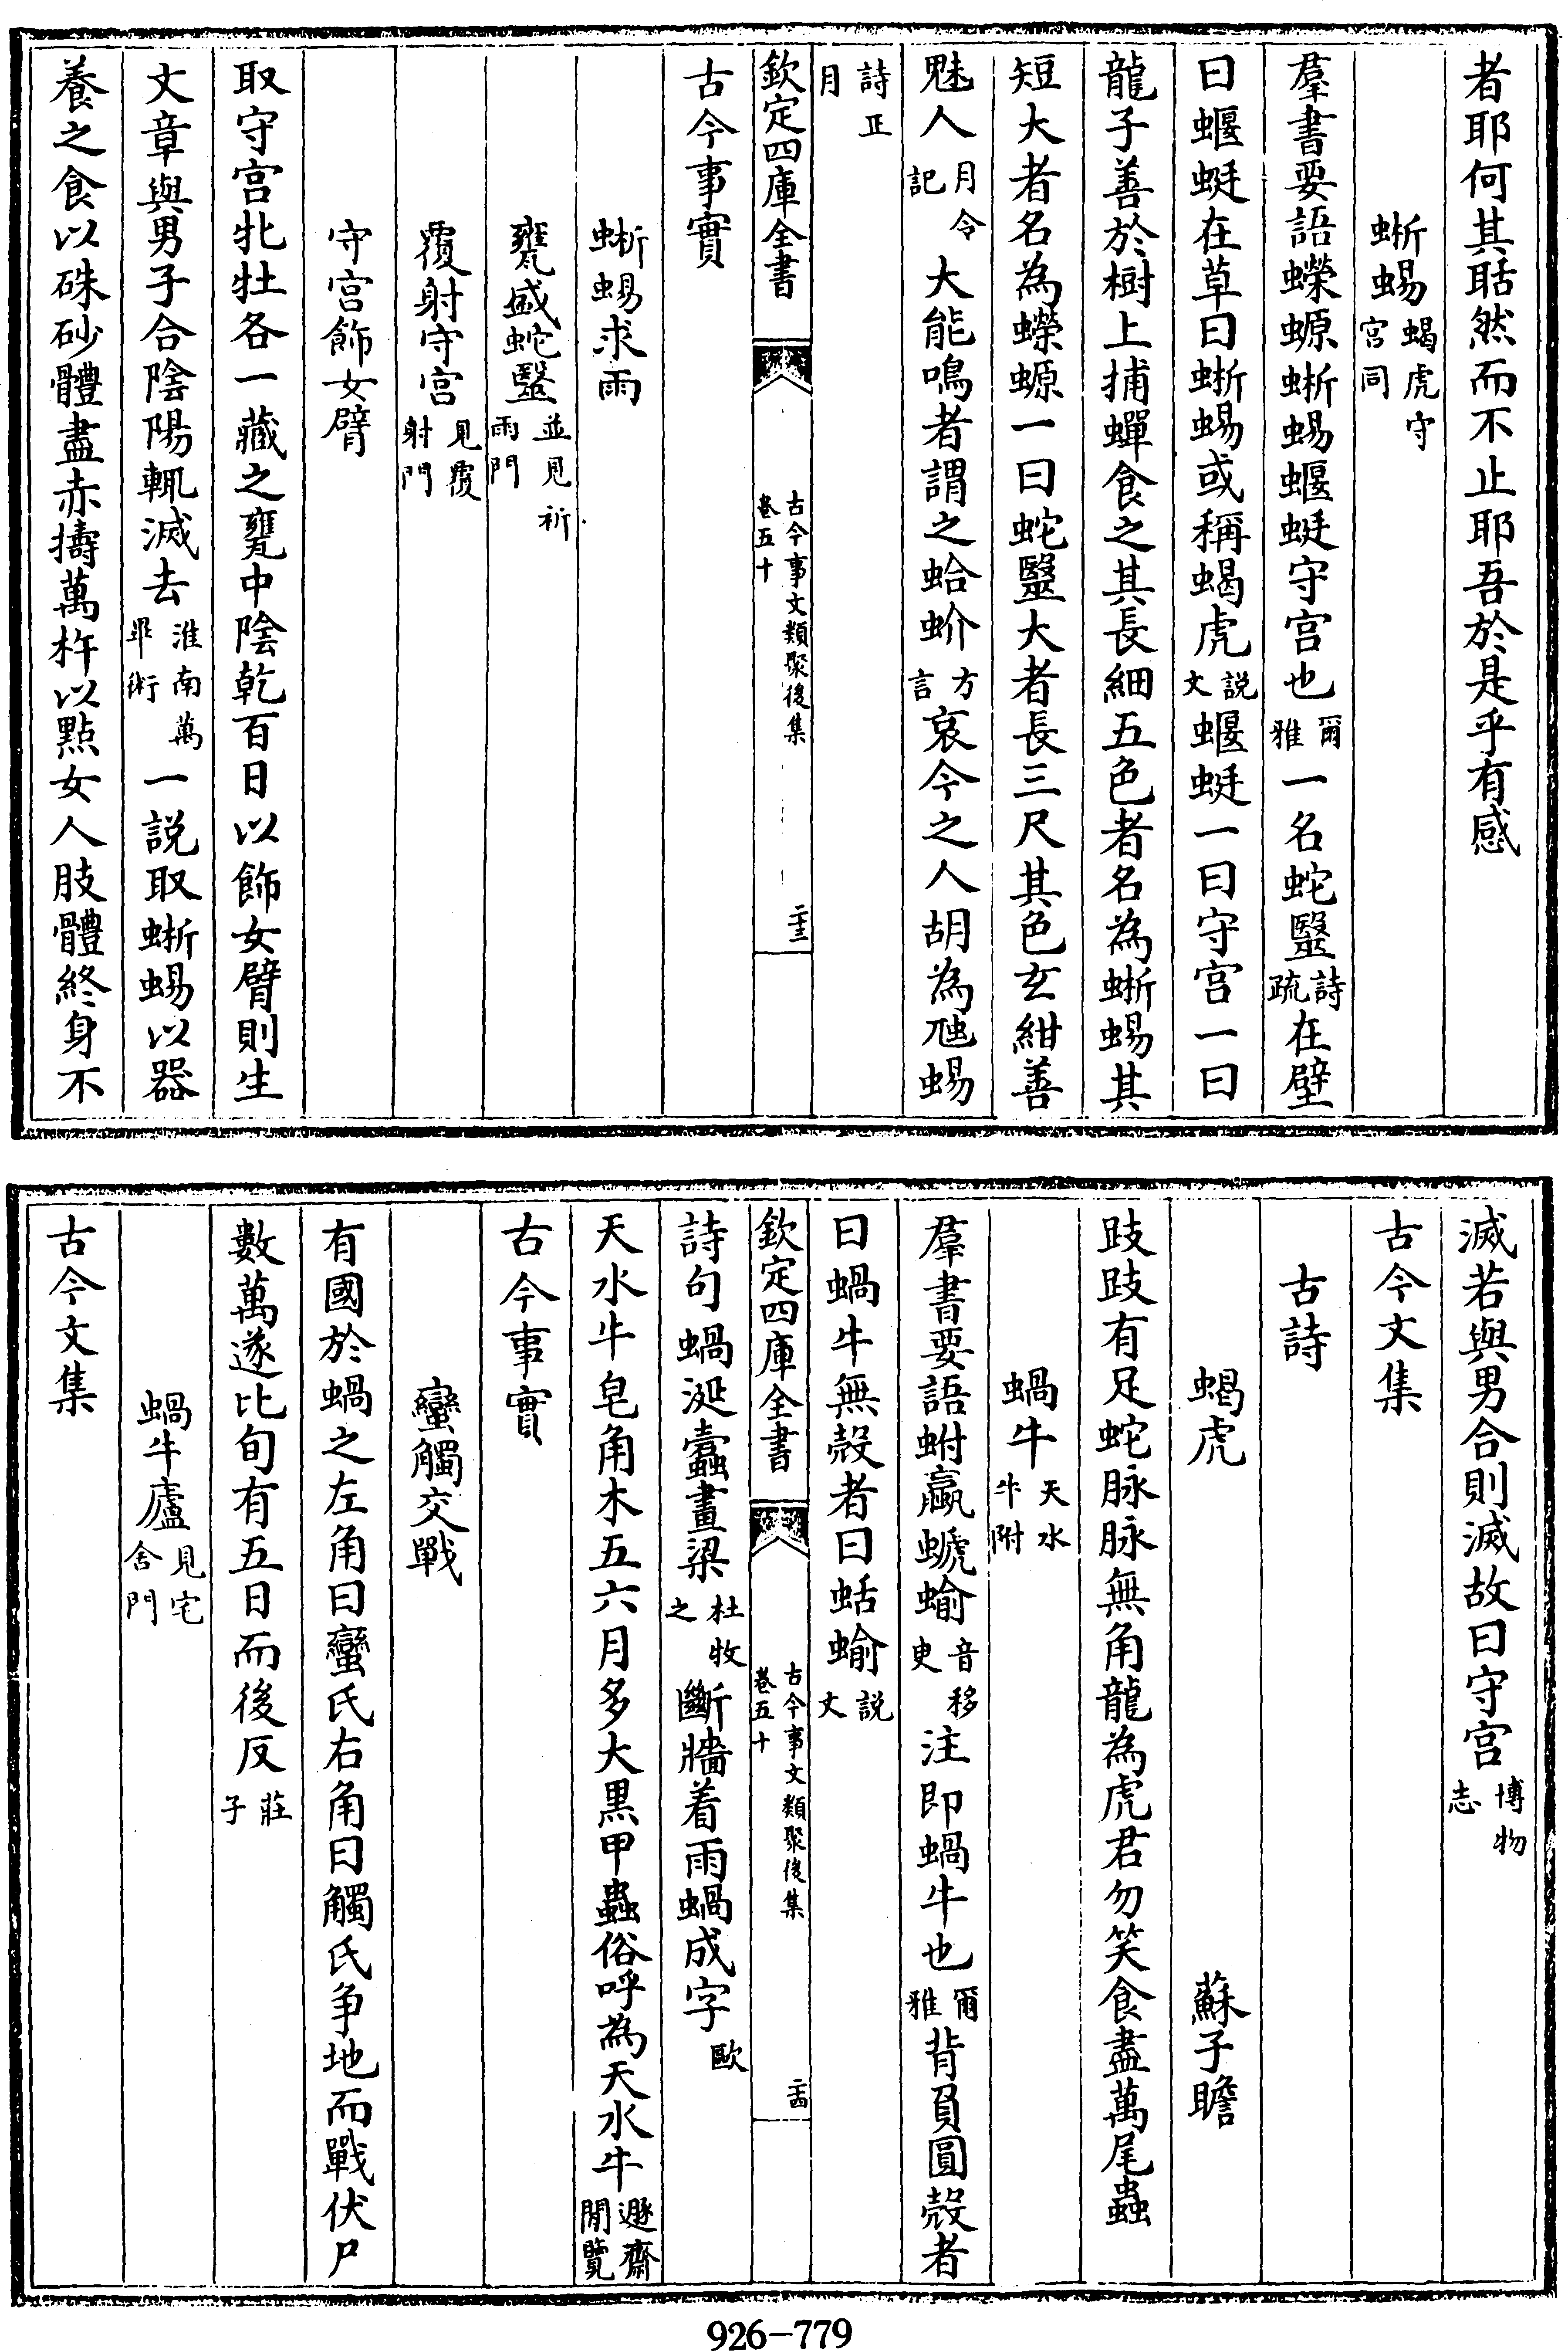 者耶何其聒然而不止耶吾於是乎有感
蜥蜴蝎虎守宫同
羣書要語蠑螈蜥蜴蝘蜓守宫也爾雅一名蛇毉詩疏在壁
曰蝘蜓在草曰蜥蜴或稱蝎虎説文蝘蜓一曰守宫一曰
龍子善於樹上捕蟬食之其長細五色者名為蜥蜴其
短大者名為蠑螈一曰蛇毉大者長三尺其色玄紺善
魅人月令記大能鳴者謂之蛤蚧方言哀今之人胡為虺蜴
詩正月
欽定四庫全書
古今事文類聚後集
卷五十
二十三
古今事實
蜥蜴求雨
甕盛蛇毉並見祈雨門
覆射守宫見覆射門
守宫飾女臂
取守宫牝牡各一藏之甕中陰乾百日以飾女臂則生
文章與男子合陰陽輒滅去淮南萬畢術一説取蜥蜴以器
養之食以硃砂體盡赤擣萬杵以點女人肢體終身不
滅若與男合則滅故曰守宫博物志
古今文集
古詩
蝎虎 蘇子瞻
跂跂有足蛇脉脉無角龍為虎君勿笑食盡萬尾蟲
蝸牛天水牛附
羣書要語蚹蠃螔蝓音移臾注即蝸牛也爾雅背負圓殻者
曰蝸牛無殻者曰蛞蝓説文
欽定四庫全書
古今事文類聚後集
卷五十
二十四
詩句蝸涎蠹畫梁杜牧之斷牆着雨蝸成字歐
天水牛皂角木五六月多大黒甲蟲俗呼為天水牛遯齋閒覽
古今事實
蠻觸交戰
有國於蝸之左角曰蠻氏右角曰觸氏争地而戰伏尸
數萬遂比旬有五日而後反莊子
蝸牛廬見宅舍門
古今文集
926-779